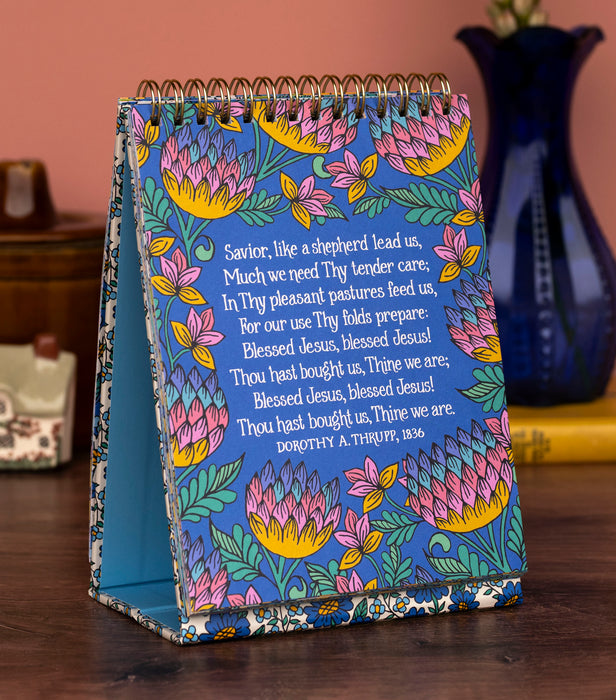 Savior, like a shepherd lead us,
Much we need Thy tender care;
In Thy pleasant pastures feed us,
For our use Thy folds prepare:
Blessed Jesus, blessed Jesus!
Thou hast bought us, Thine we are;
Blessed Jesus, blessed Jesus!
Thou hast bought us, Thine we are.
DOROTHY A. THRUPP, 1836